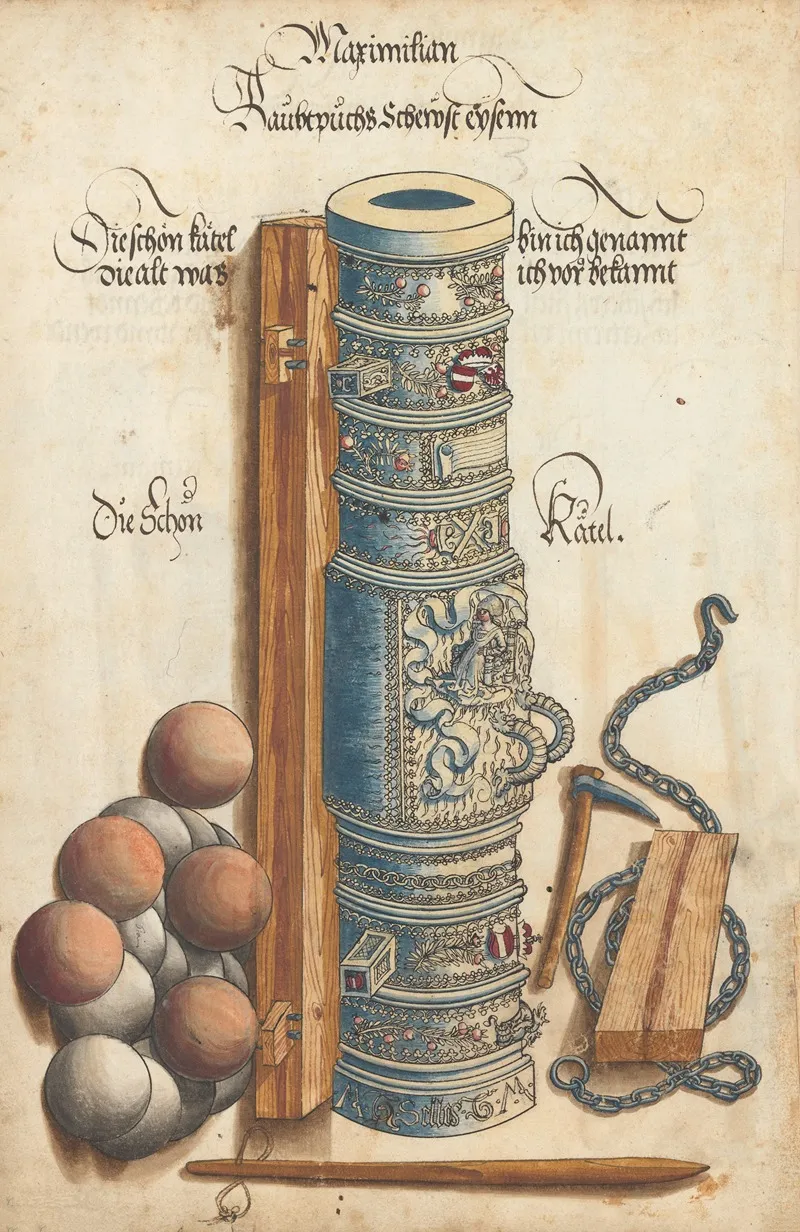 Maximilian
Haubtpuchs Scherpst eysenn
Die schön kätel
bin ich genannt
die alt was
ich vor bekannt
Die Schön
Kätel.